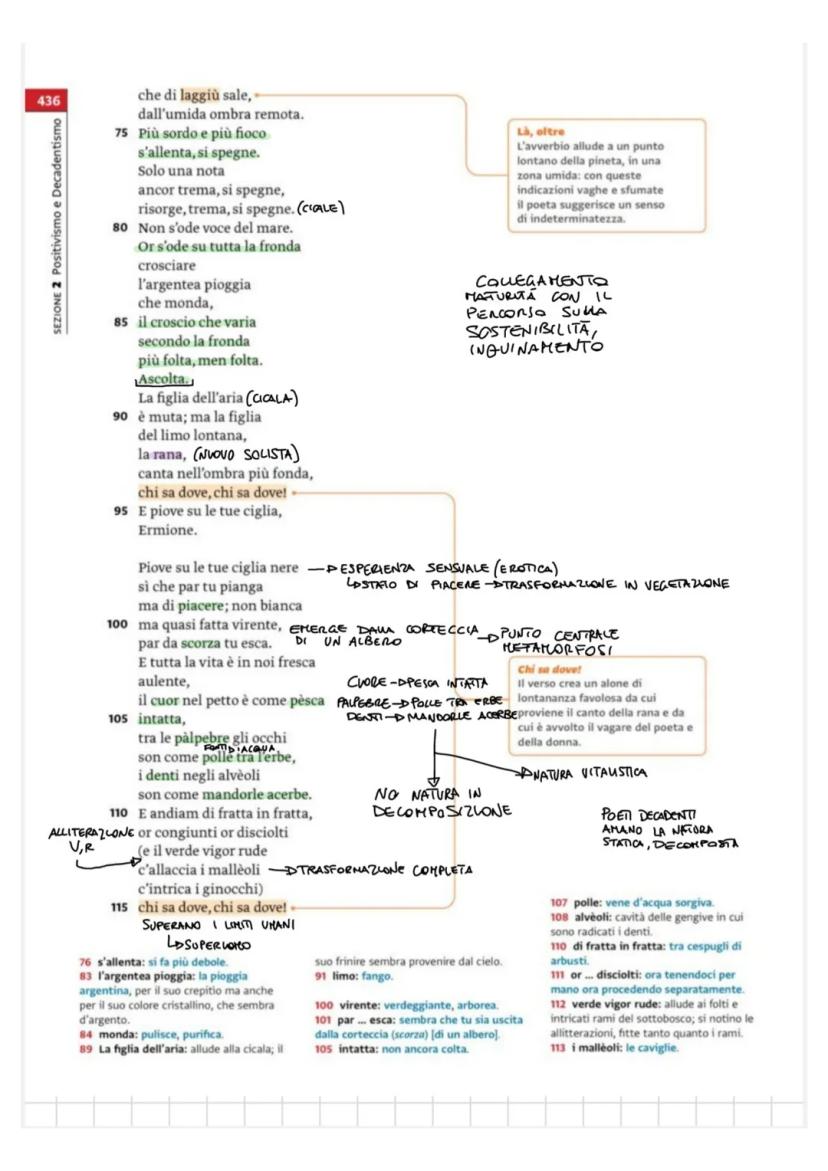 436
SEZIONE 2 Positivismo e Decadentismo
che di laggiù sale,
dall'umida ombra remota.
75 Più sordo e più fioco
s'allenta, si spegne.
Solo una nota
ancor trema, si spegne,
risorge, trema, si spegne. (CICALE)
80 Non s'ode voce del mare.
Or s'ode su tutta la fronda
crosciare
l'argentea pioggia
che monda,
85 il croscio che varia
secondo la fronda
più folta, men folta.
Ascolta.
La figlia dell'aria (CICALA)
90 è muta; ma la figlia
del limo lontana,
la rana, (NUOVO SOLISTA)
canta nell'ombra più fonda,
chi sa dove, chi sa dove!
95 E piove su le tue ciglia,
Ermione.
Là, oltre
L'avverbio allude a un punto
lontano della pineta, in una
zona umida: con queste
indicazioni vaghe e sfumate
il poeta suggerisce un senso
di indeterminatezza.
COLLEGAMENTO
MATURITÀ CON IL
PERCORSO SULLA
SOSTENIBILITÀ,
INQUINAMENTO
Piove su le tue ciglia nere → ESPERIENZA SENSUALE (EROTICA)
sì che par tu pianga ↳ STATO DI PIACERE → TRASFORMAZIONE IN VEGETAZIONE
ma di piacere; non bianca
100 ma quasi fatta virente, EMERGE DALLA CORTECCIA → PUNTO CENTRALE
par da scorza tu esca. DI UN ALBERO METAMORFOSI
E tutta la vita è in noi fresca
aulente,
il cuor nel petto è come pèsca
105 intatta,
tra le pàlpebre gli occhi
FONTI D'ACQUA
son come polle tra l'erbe,
i denti negli alvèoli
son come mandorle acerbe.
110 E andiam di fratta in fratta,
or congiunti or disciolti
(e il verde vigor rude
c'allaccia i mallèoli → TRASFORMAZIONE COMPLETA
c'intrica i ginocchi)
115 chi sa dove, chi sa dove!
SUPERANO I LIMITI UMANI
↳ SUPERUOMO
ALLITERAZIONE
V, R
CUORE → PESCA INTATTA
PALPEBRE → POLLE TRA ERBE
DENTI → MANDORLE ACERBE
NO NATURA IN
DECOMPOSIZIONE
→ NATURA VITALISTICA
Chi sa dove!
Il verso crea un alone di
lontananza favolosa da cui
proviene il canto della rana e da
cui è avvolto il vagare del poeta e
della donna.
POETI DECADENTI
AMANO LA NATURA
STATICA, DECOMPOSTA
76 s'allenta: si fa più debole.
83 l'argentea pioggia: la pioggia
argentina, per il suo crepitio ma anche
per il suo colore cristallino, che sembra
d'argento.
84 monda: pulisce, purifica.
89 La figlia dell'aria: allude alla cicala; il
suo frinire sembra provenire dal cielo.
91 limo: fango.
100 virente: verdeggiante, arborea.
101 par ... esca: sembra che tu sia uscita
dalla corteccia (scorza) [di un albero].
105 intatta: non ancora colta.
107 polle: vene d'acqua sorgiva.
108 alvèoli: cavità delle gengive in cui
sono radicati i denti.
110 di fratta in fratta: tra cespugli di
arbusti.
111 or ... disciolti: ora tenendoci per
mano ora procedendo separatamente.
112 verde vigor rude: allude ai folti e
intricati rami del sottobosco; si notino le
allitterazioni, fitte tanto quanto i rami.
113 i mallèoli: le caviglie.